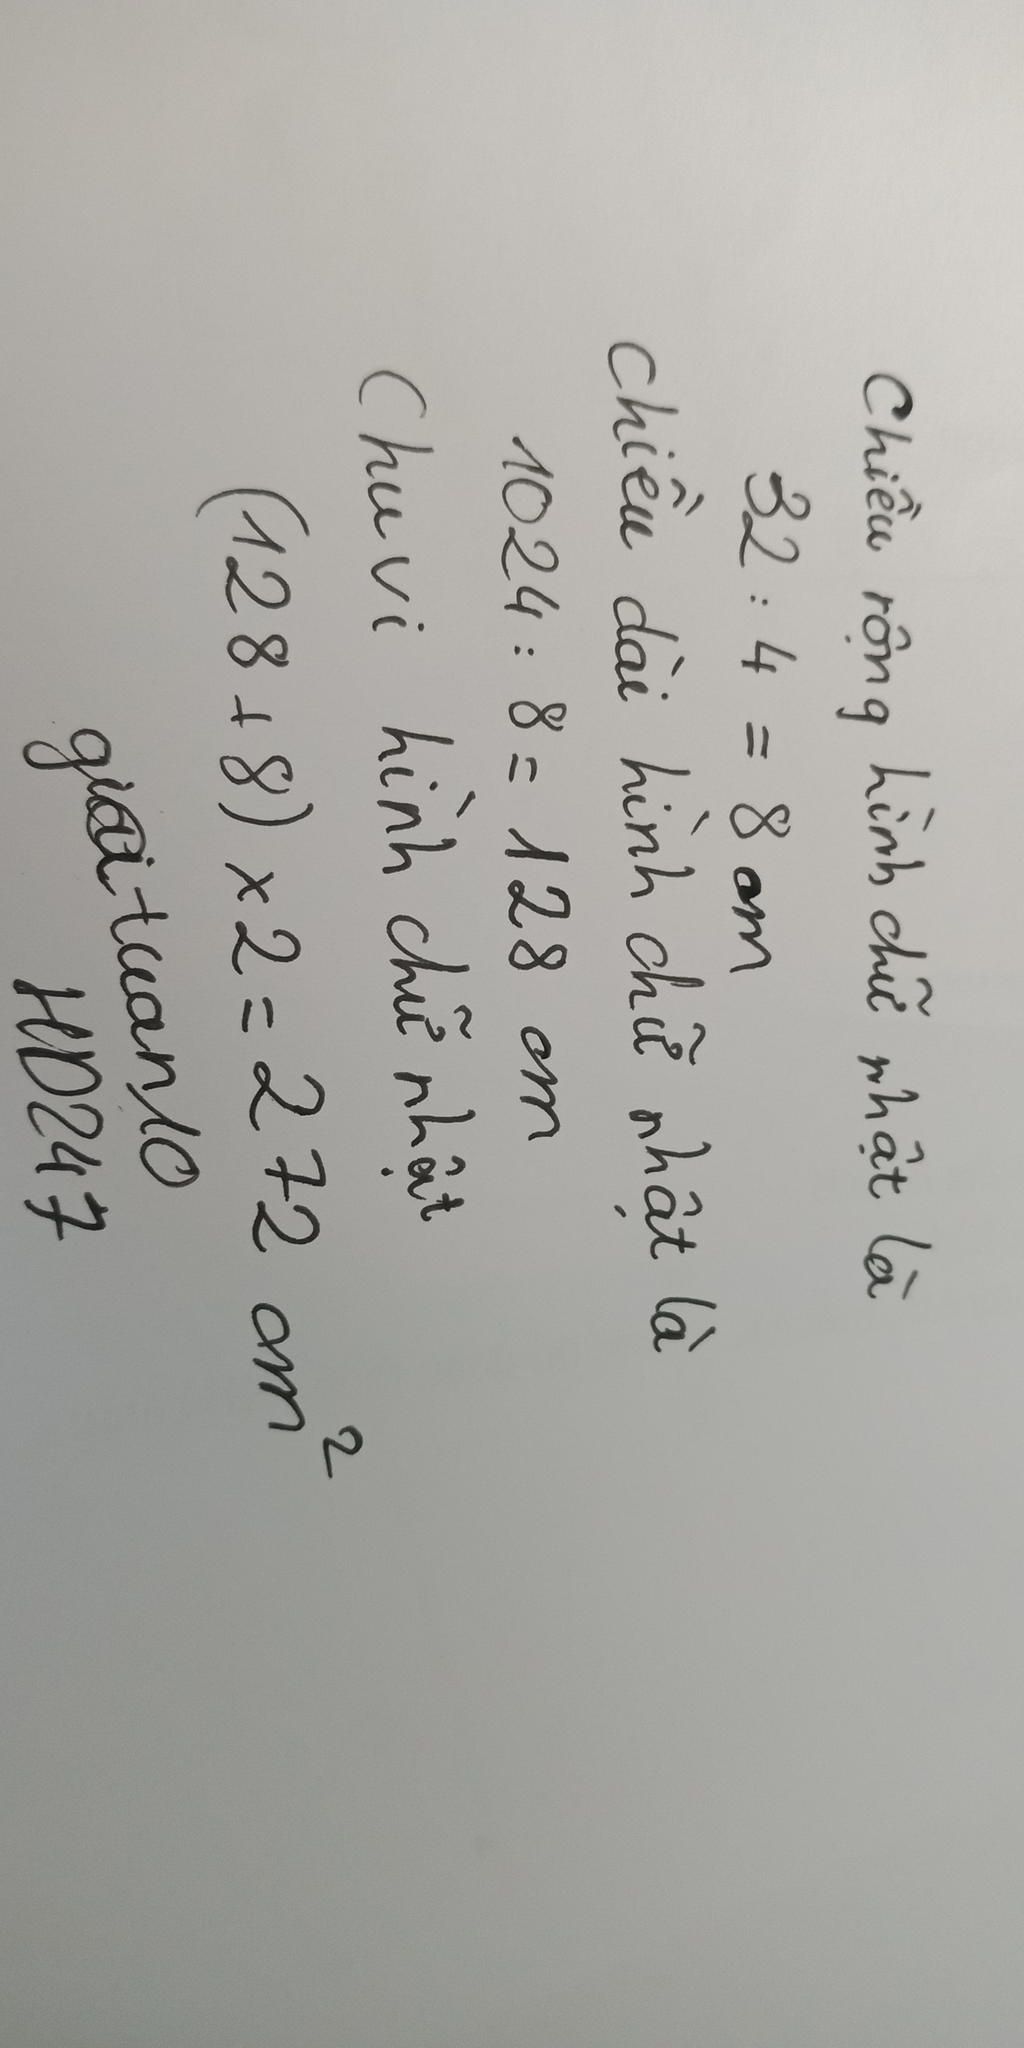 Chiều rộng hình chữ nhật là
32 : 4 = 8 cm
Chiều dài hình chữ nhật là
1024 : 8 = 128 cm
Chu vi hình chữ nhật
(128 + 8) x 2 = 272 cm²
giaituan10
HD247